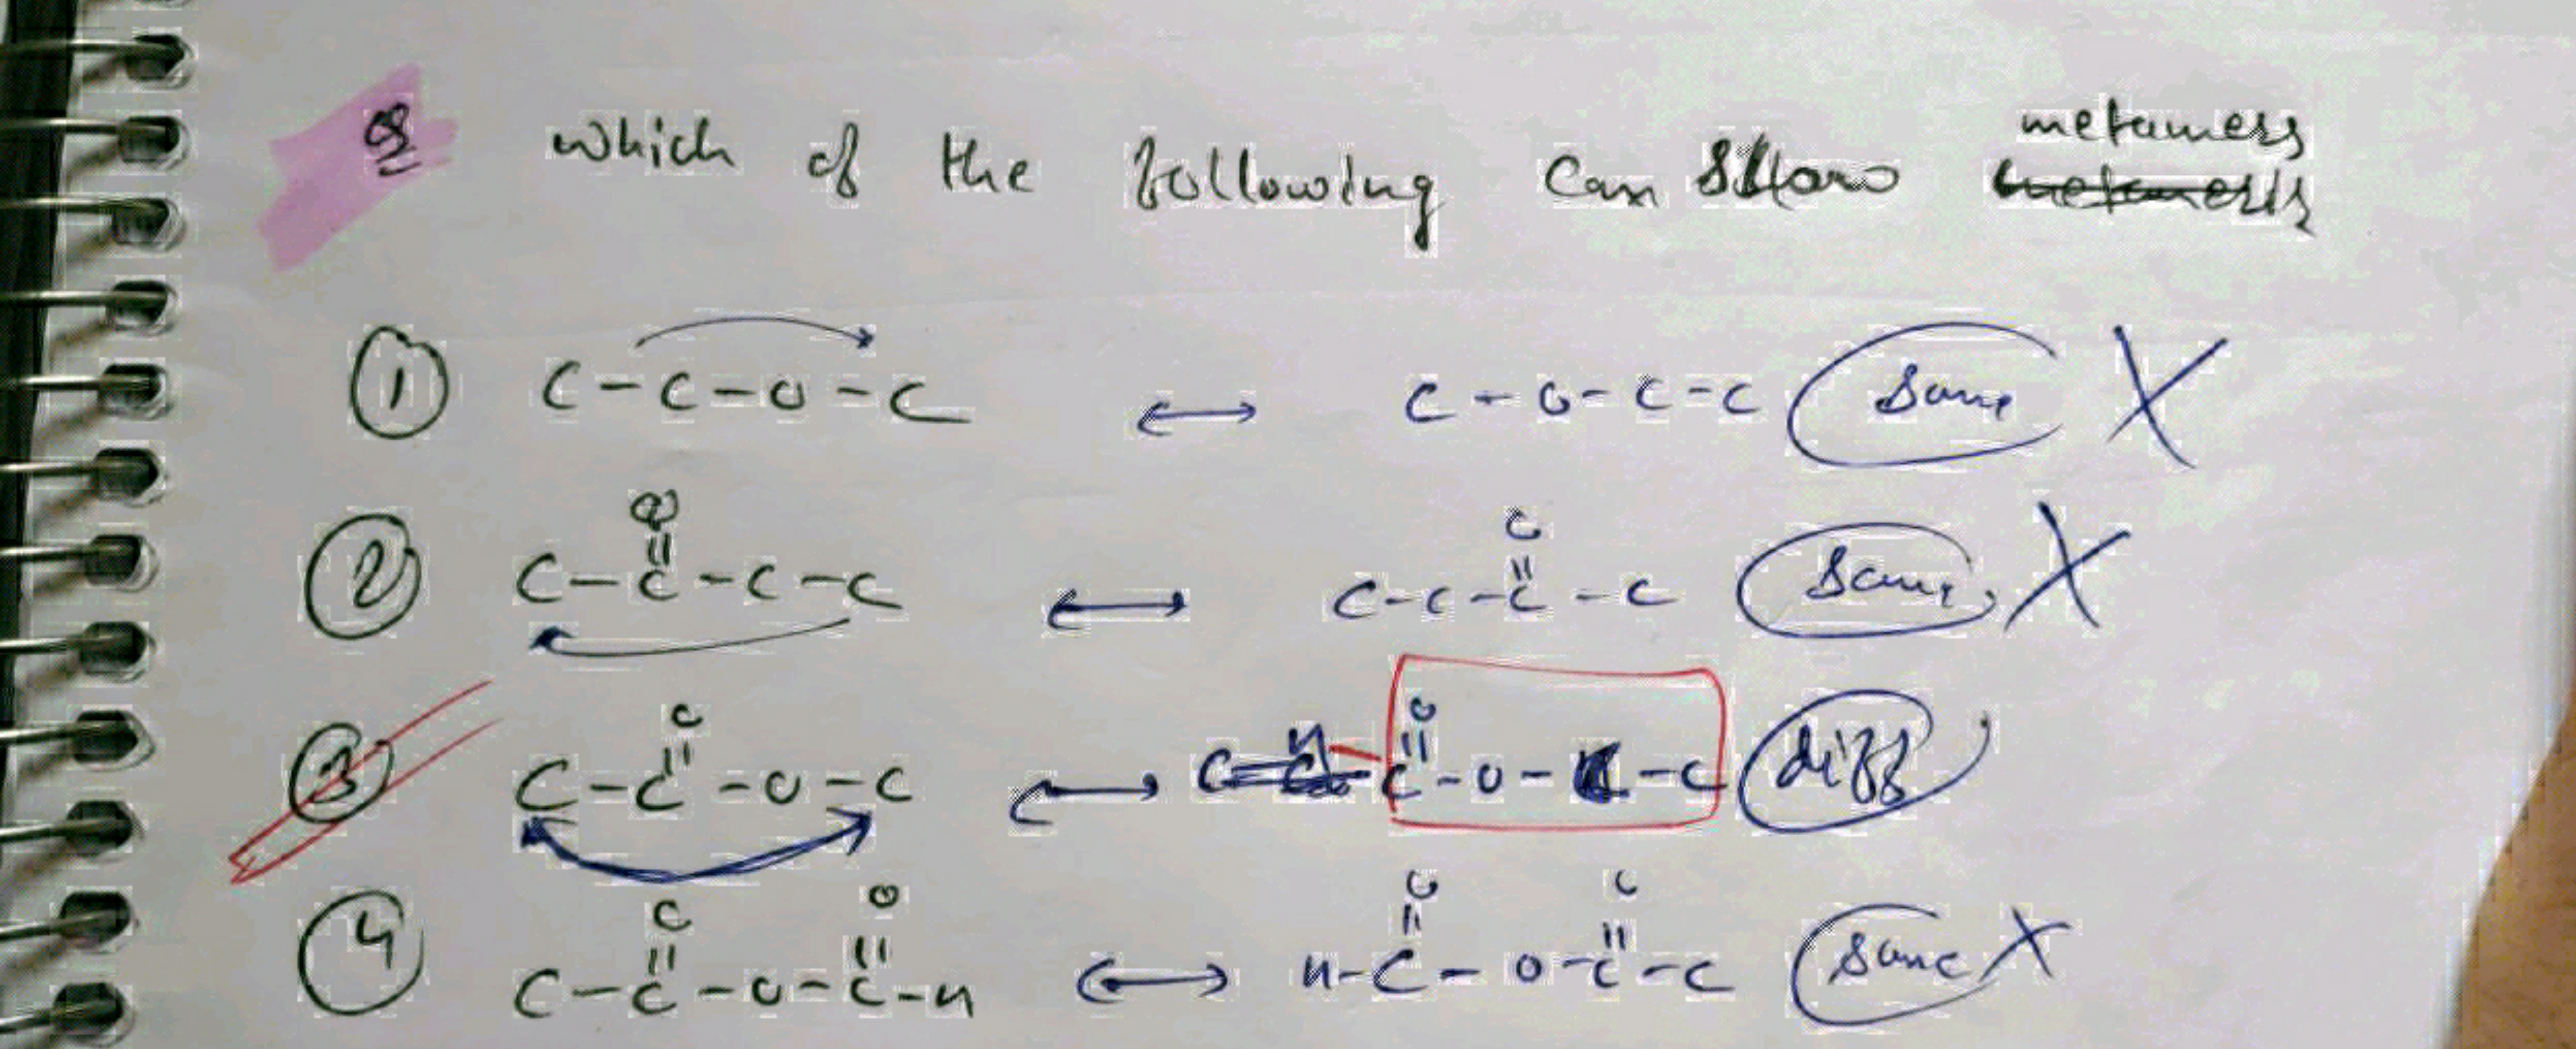 Q which of the following can show metamers
① C-C-O-C ↔ C-O-C-C Same X
O O
|| ||
② C-C-C-C ↔ C-C-C-C Same X
O O
|| ||
③ C-C-O-C ↔ H-C-O-C-C diff
O O O O
|| || || ||
④ C-C-O-C-H ↔ H-C-O-C-C Same X